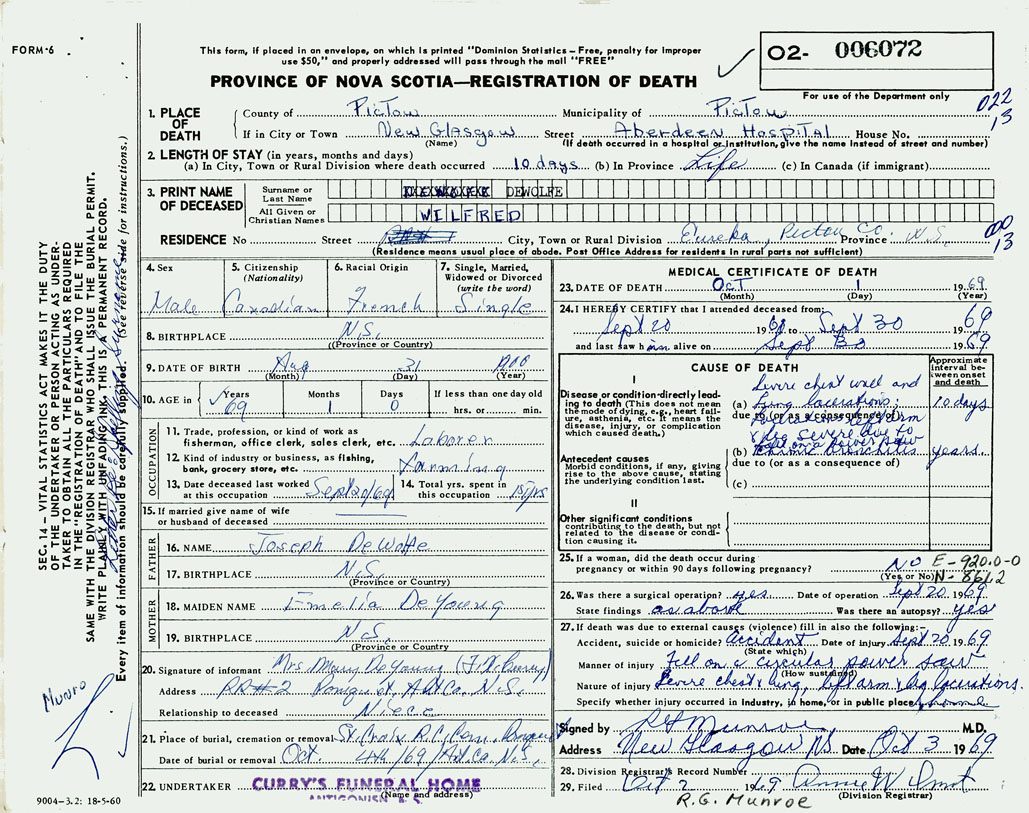 FORM-6
This form, if placed in an envelope, on which is printed "Dominion Statistics – Free, penalty for improper
use $50," and properly addressed will pass through the mail "FREE"
02- 006072
PROVINCE OF NOVA SCOTIA—REGISTRATION OF DEATH
For use of the Department only
022
13
1. PLACE OF DEATH
County of Pictou Municipality of Pictou
If in City or Town New Glasgow Street Aberdeen Hospital House No.
(Name) (If death occurred in a hospital or institution, give the name instead of street and number)
2. LENGTH OF STAY (in years, months and days)
(a) In City, Town or Rural Division where death occurred 10 days (b) In Province Life (c) In Canada (if immigrant)
3. PRINT NAME OF DECEASED
Surname or Last Name DEWOLFE
All Given or Christian Names WILFRED
RESIDENCE No Street City, Town or Rural Division Eureka, Pictou Co. Province N.S.
000
13
(Residence means usual place of abode. Post Office Address for residents in rural parts not sufficient)
4. Sex
Male
5. Citizenship
(Nationality)
Canadian
6. Racial Origin
French
7. Single, Married,
Widowed or Divorced
(write the word)
Single
8. BIRTHPLACE N.S.
((Province or Country)
9. DATE OF BIRTH Aug 31 1900
(Month) (Day) (Year)
10. AGE in
Years Months Days If less than one day old
69 1 0 hrs. or min.
OCCUPATION
11. Trade, profession, or kind of work as
fisherman, office clerk, sales clerk, etc. Laborer
12. Kind of industry or business, as fishing,
bank, grocery store, etc. Farming
13. Date deceased last worked
at this occupation Sept 20/69
14. Total yrs. spent in
this occupation 15 yrs
15. If married give name of wife
or husband of deceased
FATHER
16. NAME Joseph DeWolfe
17. BIRTHPLACE N.S.
(Province or Country)
MOTHER
18. MAIDEN NAME Emelia DeYoung
19. BIRTHPLACE N.S.
(Province or Country)
20. Signature of informant Mrs. Mary DeYoung
Address RR#2 Pomquet, Ant Co. N.S.
Relationship to deceased Niece
21. Place of burial, cremation or removal St. Croix R.C. Cem.
Date of burial or removal Oct. 4th/69 Ant. Co. N.S.
22. UNDERTAKER CURRY'S FUNERAL HOME
(Name and address)
ANTIGONISH N.S.
MEDICAL CERTIFICATE OF DEATH
23. DATE OF DEATH Oct 1 1969
(Month) (Day) (Year)
24. I HEREBY CERTIFY that I attended deceased from:
Sept 20 1969 to Sept 30 69
and last saw him alive on Sept 30 1969
CAUSE OF DEATH
Approximate
interval be-
tween onset
and death
I
Disease or condition directly lead-
ing to death (This does not mean
the mode of dying, e.g., heart fail-
ure, asthenia, etc. It means the
disease, injury, or complication
which caused death.)
Severe chest wall and
(a) Lung lacerations; 10 days
due to (or as a consequence of)
laceration left arm
severe due to
fall on a power saw
Antecedent causes
Morbid conditions, if any, giving
rise to the above cause, stating
the underlying condition last.
(b) Chronic Bronchitis years
due to (or as a consequence of)
(c)
II
Other significant conditions
contributing to the death, but not
related to the disease or condi-
tion causing it.
25. If a woman, did the death occur during
pregnancy or within 90 days following pregnancy? NO
(Yes or No)
E-920.0-0
N-861.2
26. Was there a surgical operation? yes Date of operation Sept 20 1969
State findings as above Was there an autopsy? yes
27. If death was due to external causes (violence) fill in also the following:–
Accident, suicide or homicide? Accident Date of injury Sept 20 1969
(State which)
Manner of injury Fell on a circular power saw
(How sustained)
Nature of injury Severe chest & lung, left arm & leg lacerations.
Specify whether injury occurred in industry, in home, or in public place
Signed by RG Munroe M.D.
Address New Glasgow NS. Date Oct 3 1969
28. Division Registrar's Record Number
29. Filed Oct 2 1969 Annie W
(Division Registrar)
R.G. Munroe
SEC. 14 – VITAL STATISTICS ACT MAKES IT THE DUTY
OF THE UNDERTAKER OR PERSON ACTING AS UNDER-
TAKER TO OBTAIN ALL THE PARTICULARS REQUIRED
IN THE "REGISTRATION OF DEATH" AND TO FILE THE
SAME WITH THE DIVISION REGISTRAR WHO SHALL ISSUE THE BURIAL PERMIT.
WRITE PLAINLY WITH UNFADING INK. THIS IS A PERMANENT RECORD.
Every item of information should be carefully supplied. (See reverse side for instructions.)
Munro
9004–3.2: 18-5-60